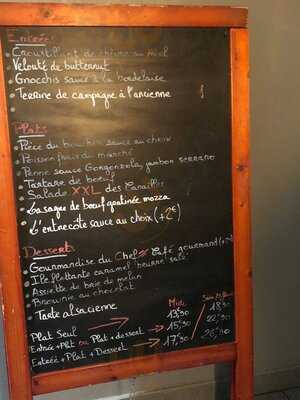 Entrées
Croustillant de chèvre au miel
Velouté de butternut
Gnocchis sauce à la bordelaise
Terrine de campagne à l'ancienne
Plats
Pièce du boucher sauce au choix
Poisson frais du marché
Penne sauce Gorgonzola, jambon serrano
Tartare de boeuf
Salade XXL des Canailles
Lasagne de boeuf gratinée mozza
L'entrecôte sauce au choix (+2€)
Desserts
Gourmandise du Chef // Café gourmand (+2€)
Île flottante caramel beurre salé
Assiette de brie de melun
Brownie au chocolat
Tarte alsacienne
Midi
Plat Seul → 13,30 18,30
Entrée + Plat ou Plat + dessert → 15,30
Entrée + Plat + Dessert → 17,30